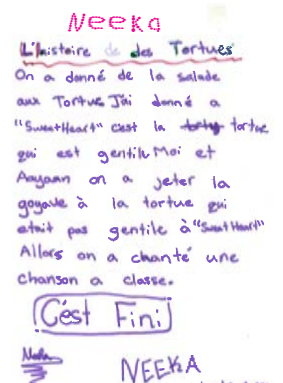 NEEKA
L'histoire de des Tortues
On a donné de la salade
aux Tortue J'ai donné a
"SweetHeart" c'est la tortu tortue
qui est gentile Moi et
Aayaan on a jeter la
goyave à la tortue qui
etait pas gentile à "SweetHeart"
Allors on a chanté une
chanson a classe.
C'est Fini
Neeka
NEEKA